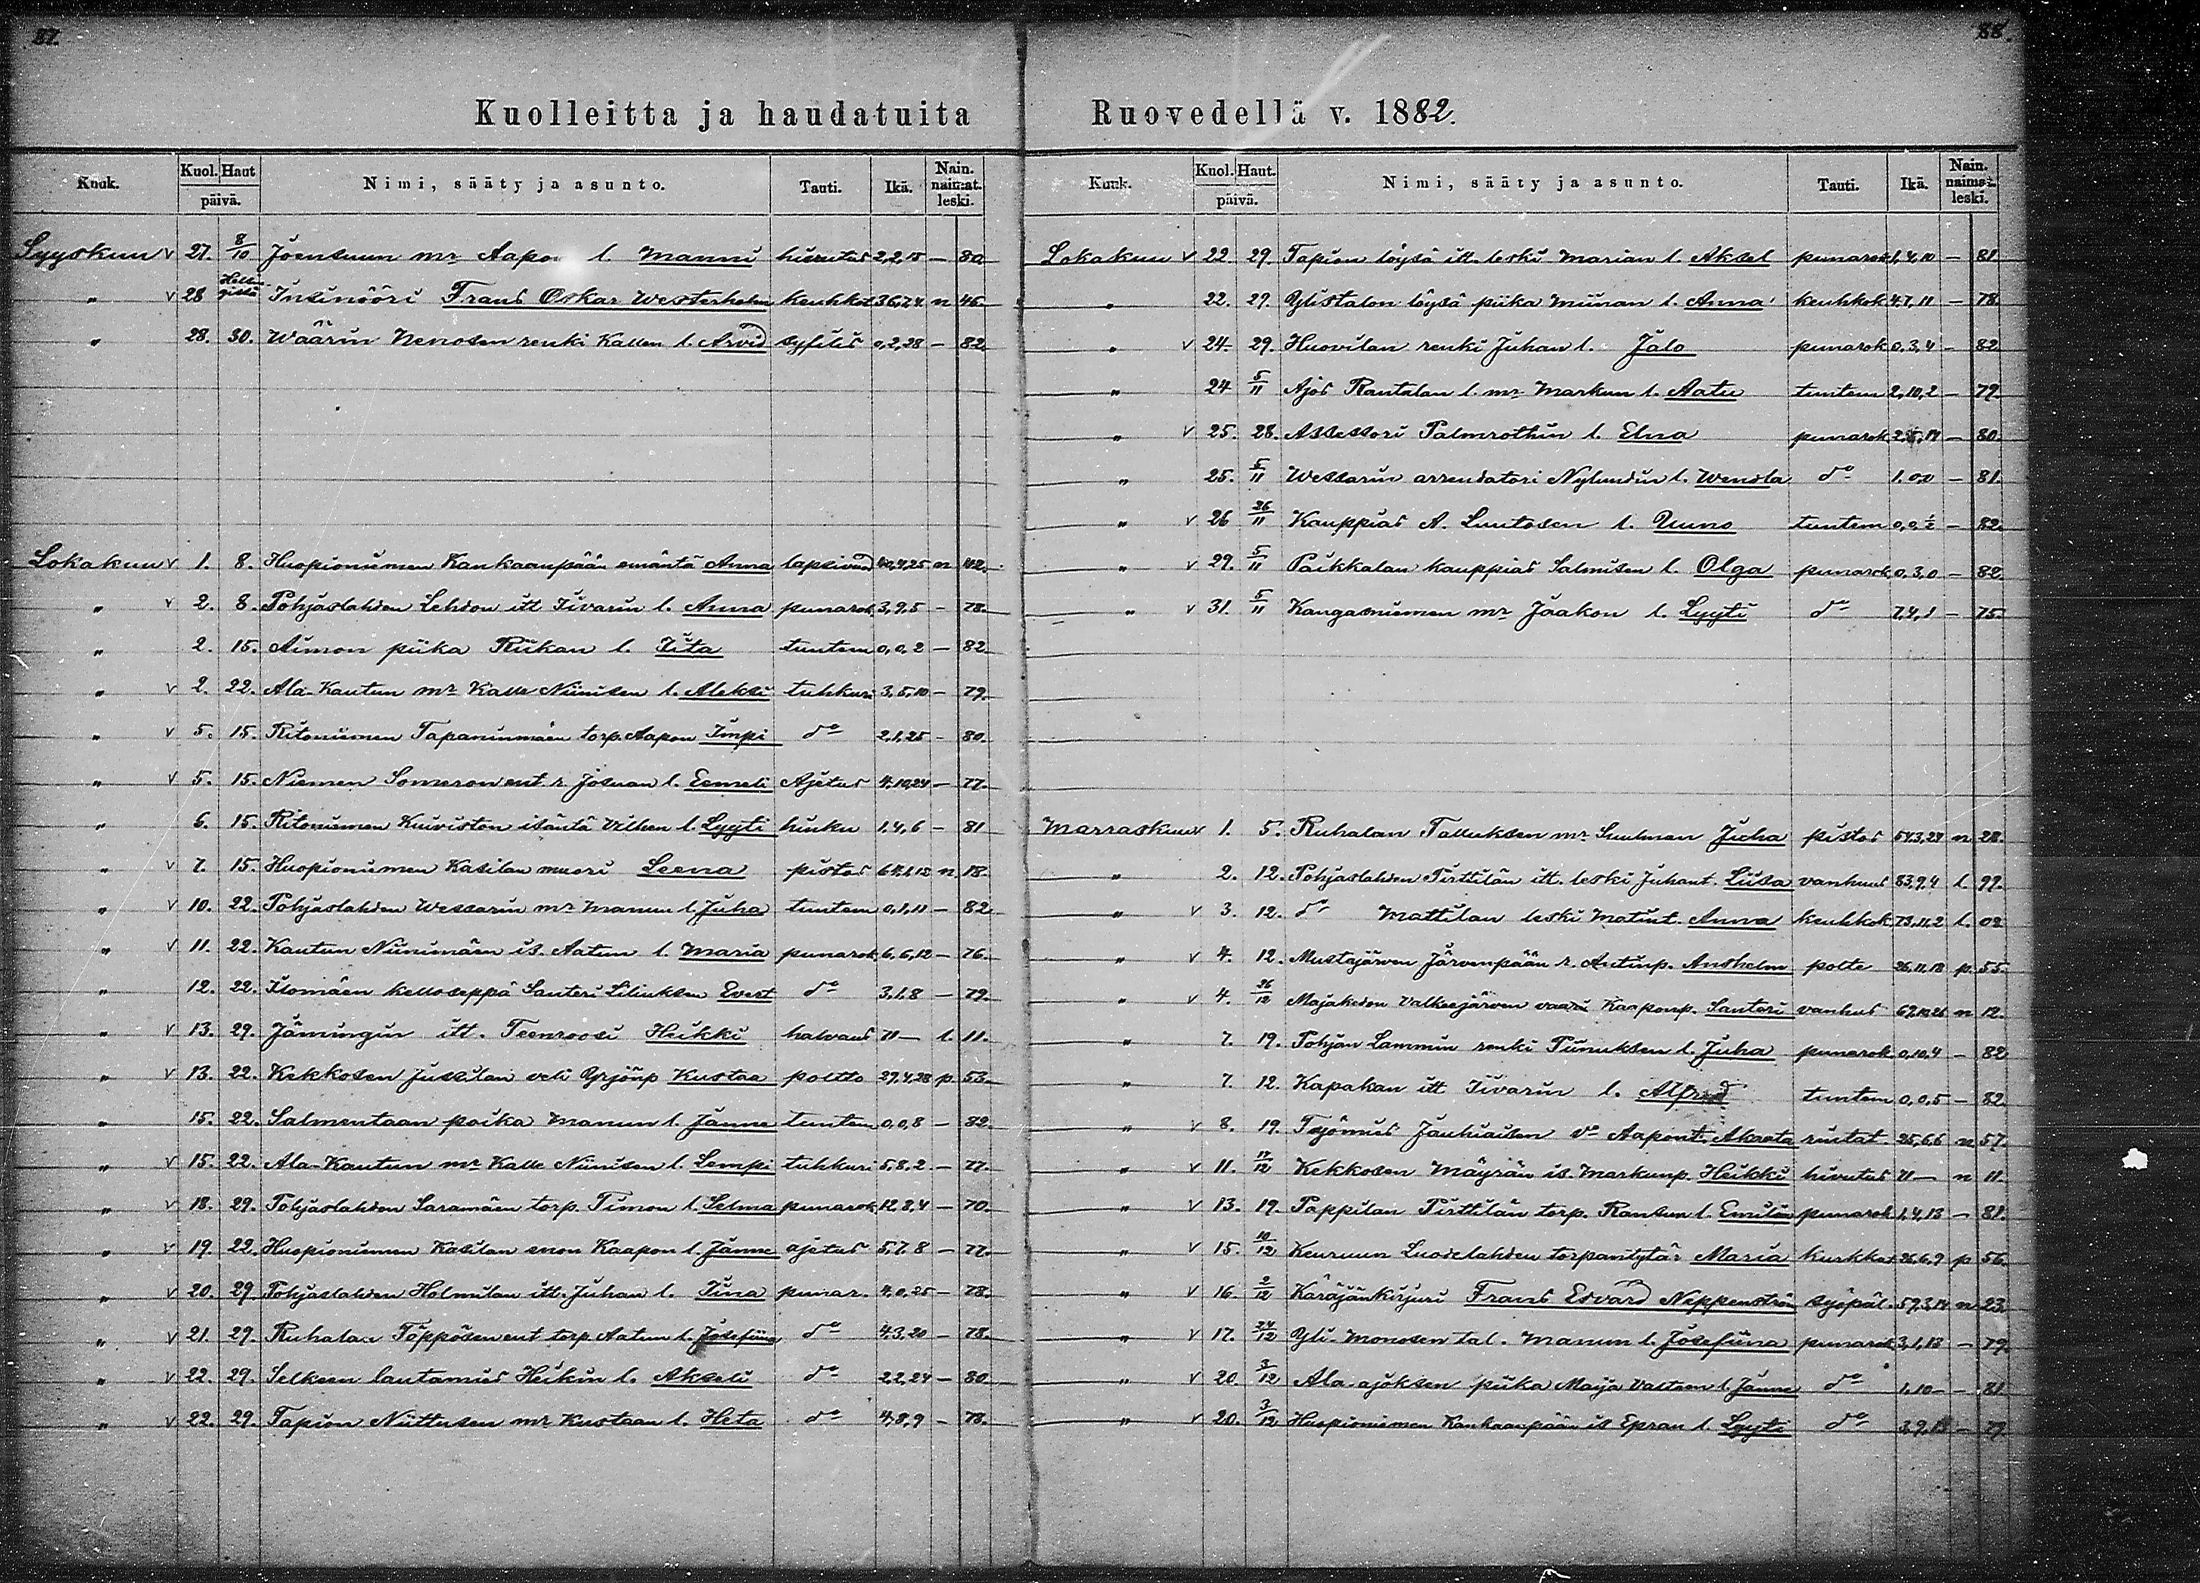 87.
Kuolleitta ja haudatuita
Kuuk. Kuol. Haut päivä. Nimi, sääty ja asunto. Tauti. Ikä. Nain. naimat. leski.
Syyskuu v 27. 8/10 Joensuun mr Aapon l. Manni hivutus 2,2,15 — 80.
" v 28 Helsingissä Insinööri Frans Oskar Westerholm keuhkot. 36,7,24 n 46.
" 28. 30. Wäärin Nenosen renki Kallen l. Arvid syfilis 0,2,28 — 82.
Lokakuu v 1. 8. Huopioniemen Kankaanpään emäntä Anna lapsivuod. 40,4,25 n 42.
" v 2. 8. Pohjaslahden Lehdon itt Iivarin l. Anna punarok. 3,9,5 — 78.
" 2. 15. Aimon piika Riikan l. Iita tuntem 0,0,2 — 82
" v 2. 22. Ala-Kautun mr Kalle Niinisen l. Aleksi tuhkuri 3,5,10 — 79.
" v 5. 15. Ritoniemen Tapaninmäen torp. Aapon Impi do 2,1,25 — 80.
" v 5. 15. Niemen Someron ent. r. Josuan l. Eemeli Ajetus 4,10,24 — 77.
" 6. 15. Ritoniemen Kuiviston isäntä Vilhen l. Lyyti hinku 1,4,6 — 81
" v 7. 15. Huopioniemen Kasilan muori Leena pistos 64,1,12 n 18.
" v 10. 22. Pohjaslahden Wessarin mr Manun l. Juha tuntem 0,1,11 — 82.
" v 11. 22. Kautun Niinimäen is. Aatun l. Maria punarok. 6,6,12 — 76.
" 12. 22. Ilomäen kelloseppä Santeri Liliuksen Evert do 3,1,8 — 79.
" v 13. 29. Jämingin itt. Teenroosi Heikki halvaus 71 — l. 11.
" v 13. 22. Kekkosen Jussilan veli Yrjönp Kustaa poltto 29,4,28 p. 53.
" 15. 22. Salmentaan poika Manun l. Janne tuntem 0,0,8 — 82.
" v 15. 22. Ala-Kautun mr Kalle Niinisen l. Lempi tuhkuri 5,8,2 — 77.
" v 18. 29. Pohjaslahden Saramäen torp. Timon l. Selma punarok. 12,8,4 — 70.
" v 19. 22. Huopioniemen Kasilan enon Kaapon l. Janne ajetus 5,7,8 — 77.
" v 20. 29. Pohjaslahden Holmilan itt. Juhan l. Iina punar. 4,0,25 — 78.
" v 21. 29. Ruhalan Töppösen ent torp Aatun l. Josefiina do 4,3,20 — 78.
" v 22. 29. Selkeen lautamies Heikin l. Akseli do 2,2,24 — 80
" v 22. 29. Tapion Niittusen mr Kustaan l. Heta do 4,8,9 — 78.
88.
Ruovedellä v. 1882.
Kuuk. Kuol. Haut. päivä. Nimi, sääty ja asunto. Tauti. Ikä. Nain. naimat. leski.
Lokakuu v 22. 29. Tapion löysä itt. leski Marian l. Aksel punarok 1,4,10 — 81.
" 22. 29. Ylistalon löysä piika Miinan l. Anna keuhkok 4,7,11 — 78.
" v 24. 29. Huovilan renki Juhan l. Jalo punarok 0,3,4 — 82
" 24 5/11 Ajos Rantalan l. mr Markun l. Aatu tuntem 2,10,2 — 79.
" v 25. 28. Assessori Palmrothin l. Elna punarok — 80.
" 25. 5/11 Wessarin arrendatori Nylundin l. Wendla do 1.0,0 — 81.
" v 26 26/11 Kauppias A. Luutosen l. Uuno tuntem 0,0,½ — 82.
" v 29. 5/11 Paikkalan kauppias Salmisen l. Olga punarok 0,3,0 — 82.
" v 31. 5/11 Kangasniemen mr Jaakon l. Lyyti do 7,4,1 — 75.
Marraskuu v 1. 5. Ruhalan Talluksen mr Suulman Juha pistos 54,3,24 n 28.
" 2. 12. Pohjaslahden Pirttilän itt. leski Juhant. Liisa vanhuus 83,9,4 l. 99.
" v 3. 12. do Mattilan leski Matint. Anna keuhkok. 73,11,2 l. 09
" v 4. 12. Mustajärven Järvenpään r. Antinp. Anshelm polte 26,11,18 p. 55.
" v 4. 26/12 Majakedon Valkeejärven vaari Kaaponp. Santeri vanhus 67,10,26 n 12.
" 7. 19. Pohjan Lammin renki Tiinuksen l. Juha punarok 0,10,4 — 82
" 7. 12. Kapakan itt Iivarin l. Alfred tuntem 0,0,5 — 82.
" v 8. 19. Jauhiaisen vo Aapont. Akaata rintat 25,6,6 n 57.
" v 11. 17/12 Kekkosen Mäyrän is. Markunp. Heikki hivutus 71 — n 11.
" v 13. 19. Pappilan Pirttilän torp. Ransun l. Emilia punarok 1,4,13 — 81.
" v 15. 10/12 Keuruun Luodelahden torpantytär Maria kurkkut 26,6,9 p 56.
" v 16. 2/12 Käräjänkirjuri Frans Edvard Neppenström syöpät. 59,3,14 n 23.
" v 17. 24/12 Yli-Monosen tal. Manun l. Josefiina punarok 3,1,13 — 79.
" v 20. 3/12 Ala-ajoksen piika Maija Vastsen l. Janne do 1,10 — — 81
" v 20. 3/12 Huopioniemen Kankaanpään is Epran l. Lyyti do 3,9,18 — 79.